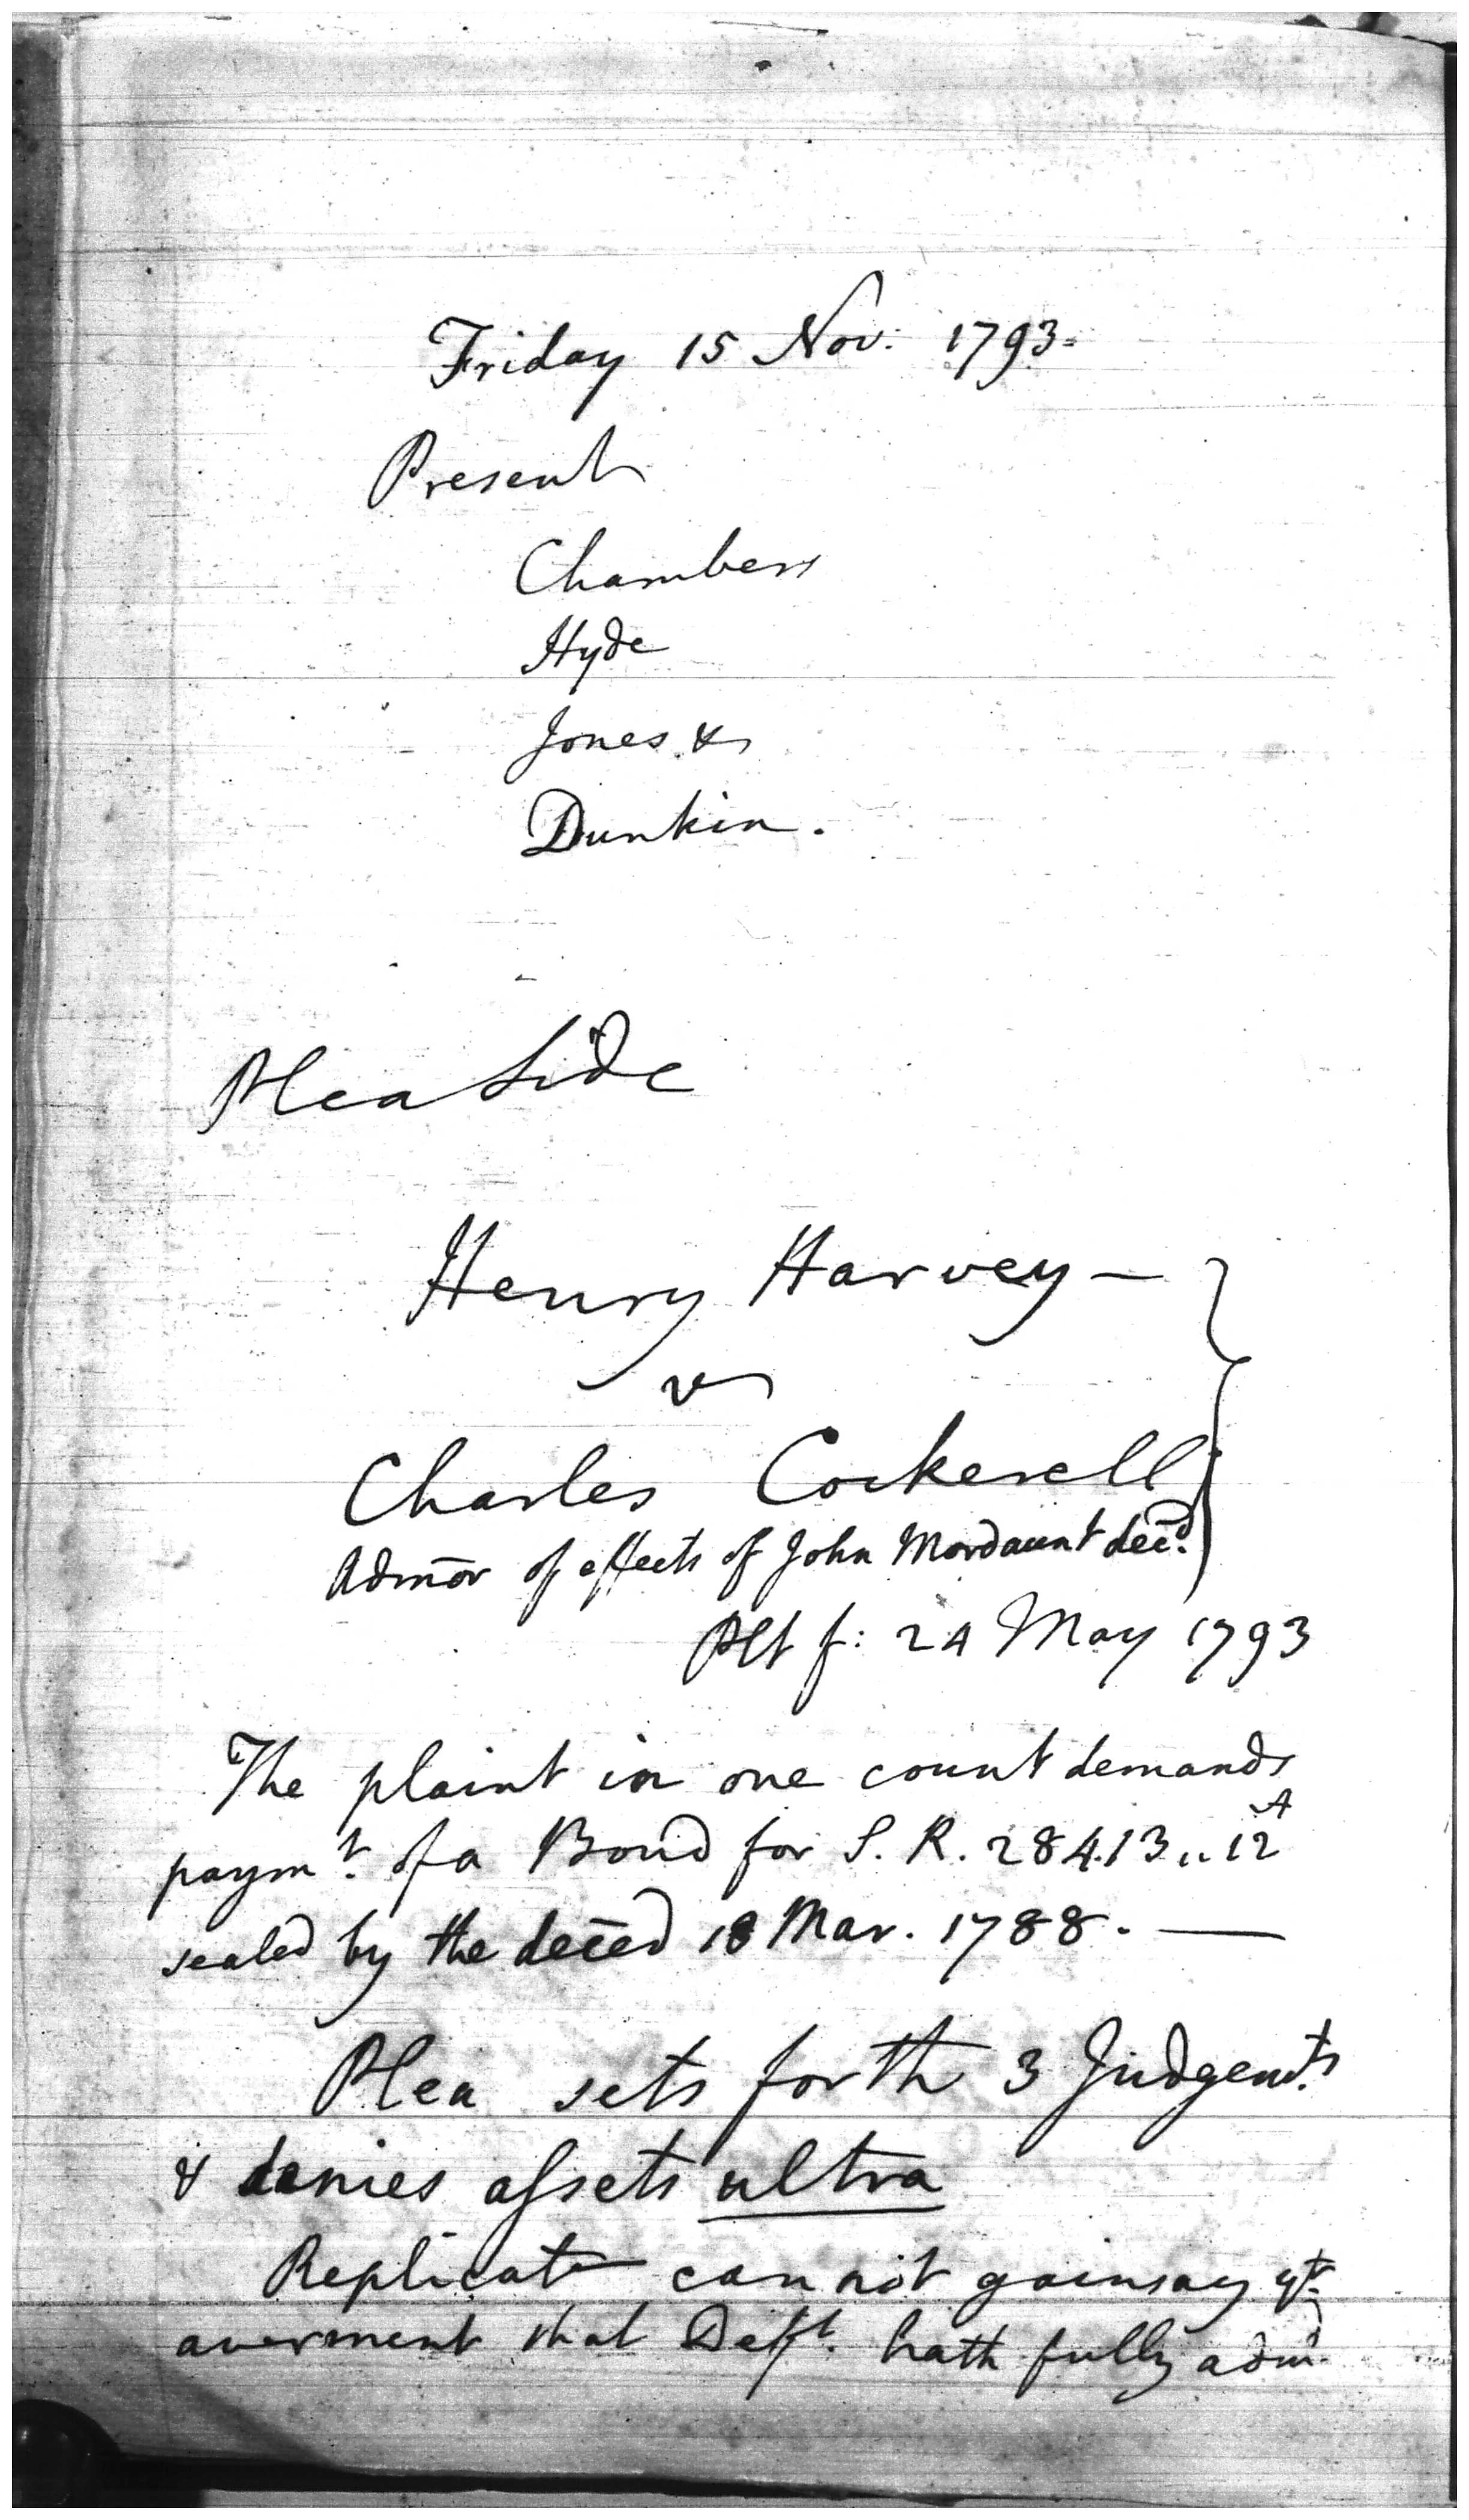 Friday 15 Nov: 1793.
Present
Chambers
Hyde
Jones &
Dunkin.
Plea Side
Henry Harvey —
vs
Charles Cockerell
Admor of effects of John Mordaunt decd.
Plt f: 24 May 1793
The plaint in one count demands
paymt. of a Bond for S. R. 28413,,12 A
sealed by the deced 18 Mar. 1788. —
Plea sets forth 3 Judgemts.
& denies assets ultra
Replicatn cannot gainsay yt.
averment that Deft. hath fully admd.